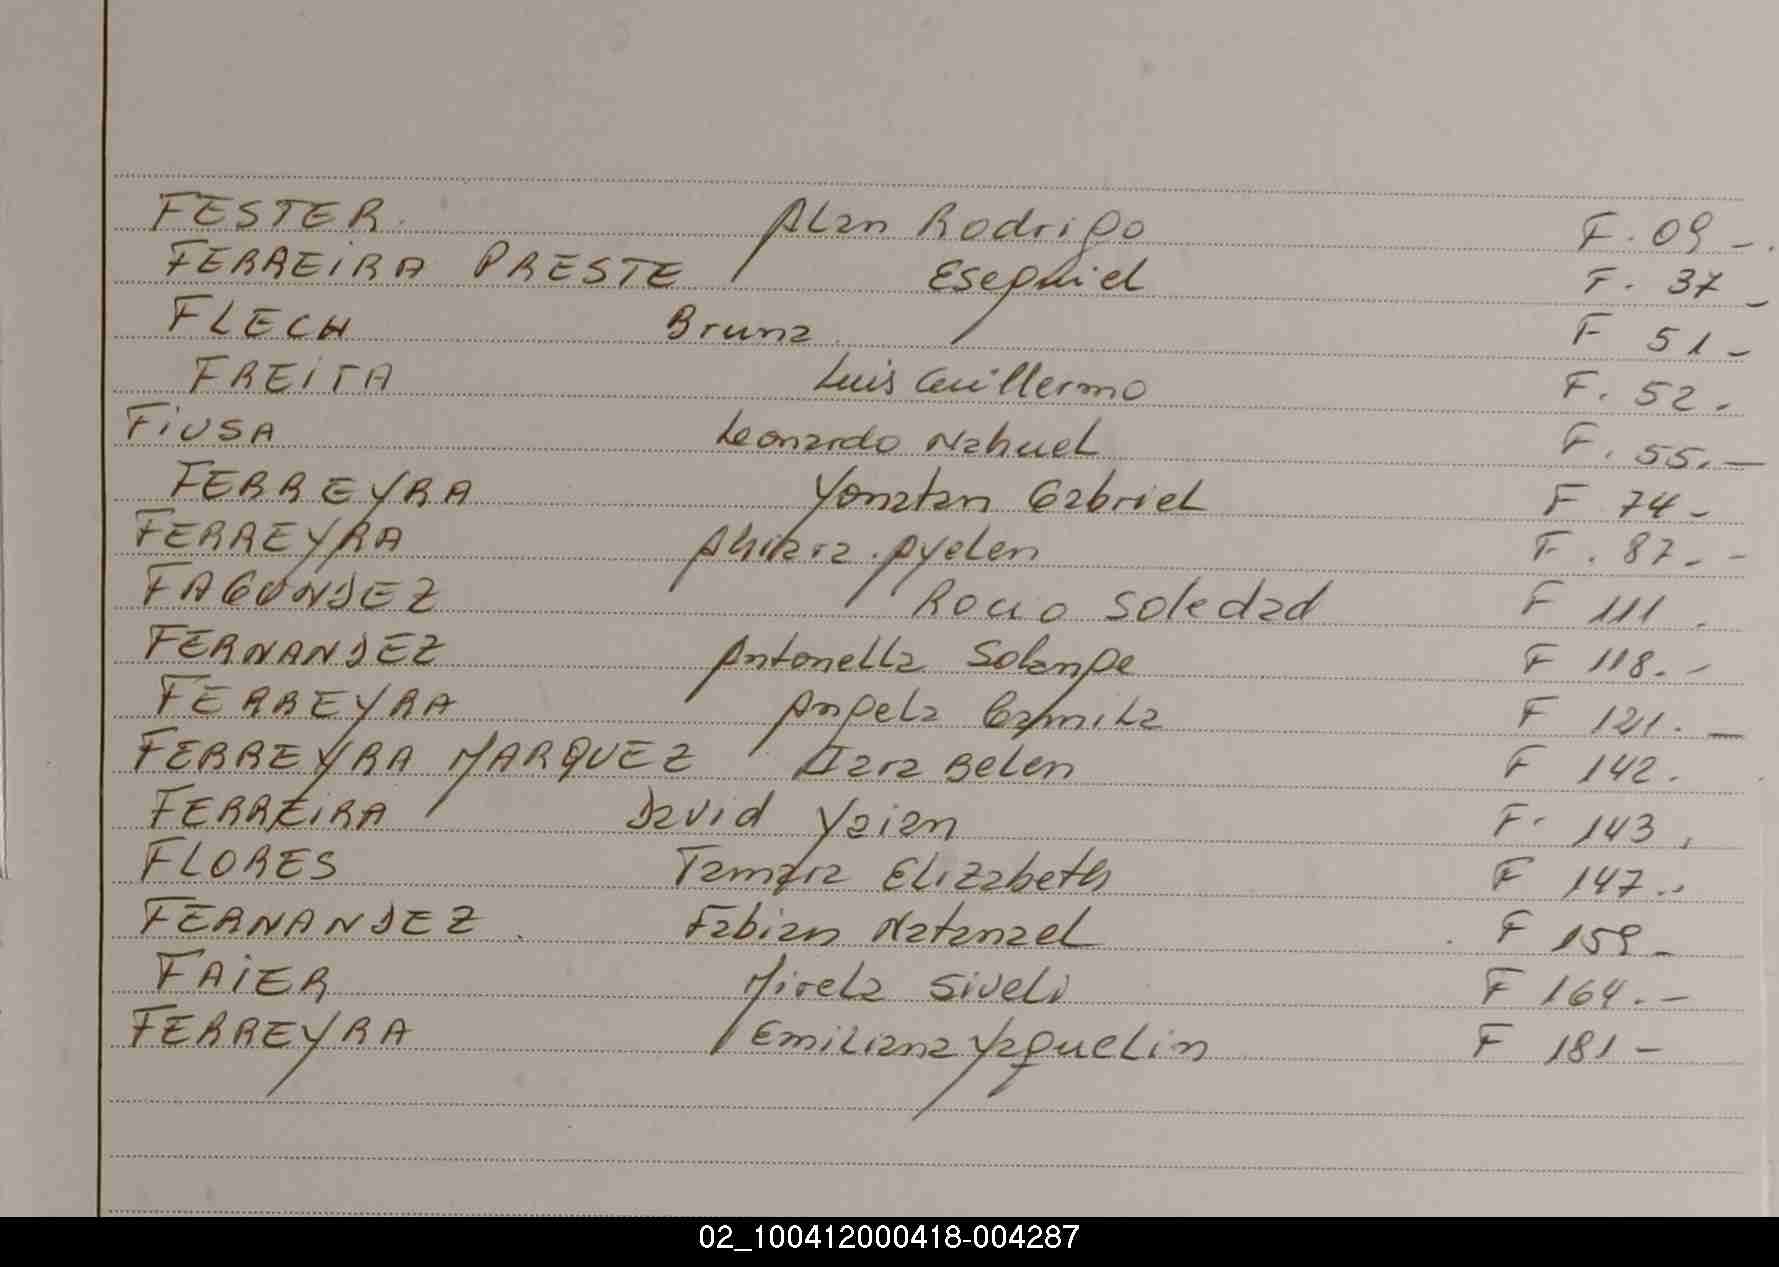 FESTER. Alan Rodrigo F. 09 -.
FERREIRA PRESTE Esequiel F. 37 -
FLECH Bruna F 51 -
FREITA Luis Guillermo F. 52.
FIUSA Leonardo Nahuel F. 55. -
FERREYRA Yonatan Gabriel F 74 -
FERREYRA Ahiara Ayelen F. 87. -
FAGUNDEZ Rocio Soledad F 111.
FERNANDEZ Antonella Solange F 118. -
FERREYRA Angela Camila F 121. -
FERREYRA MARQUEZ Iara Belen F 142.
FERREIRA David Yaian F. 143.
FLORES Tamara Elizabeth F 147..
FERNANDEZ Fabian Natanael F 159 -
FAIER Mirela Siveli F 164. -
FERREYRA Emiliana Yaquelin F 181 -
02_100412000418-004287